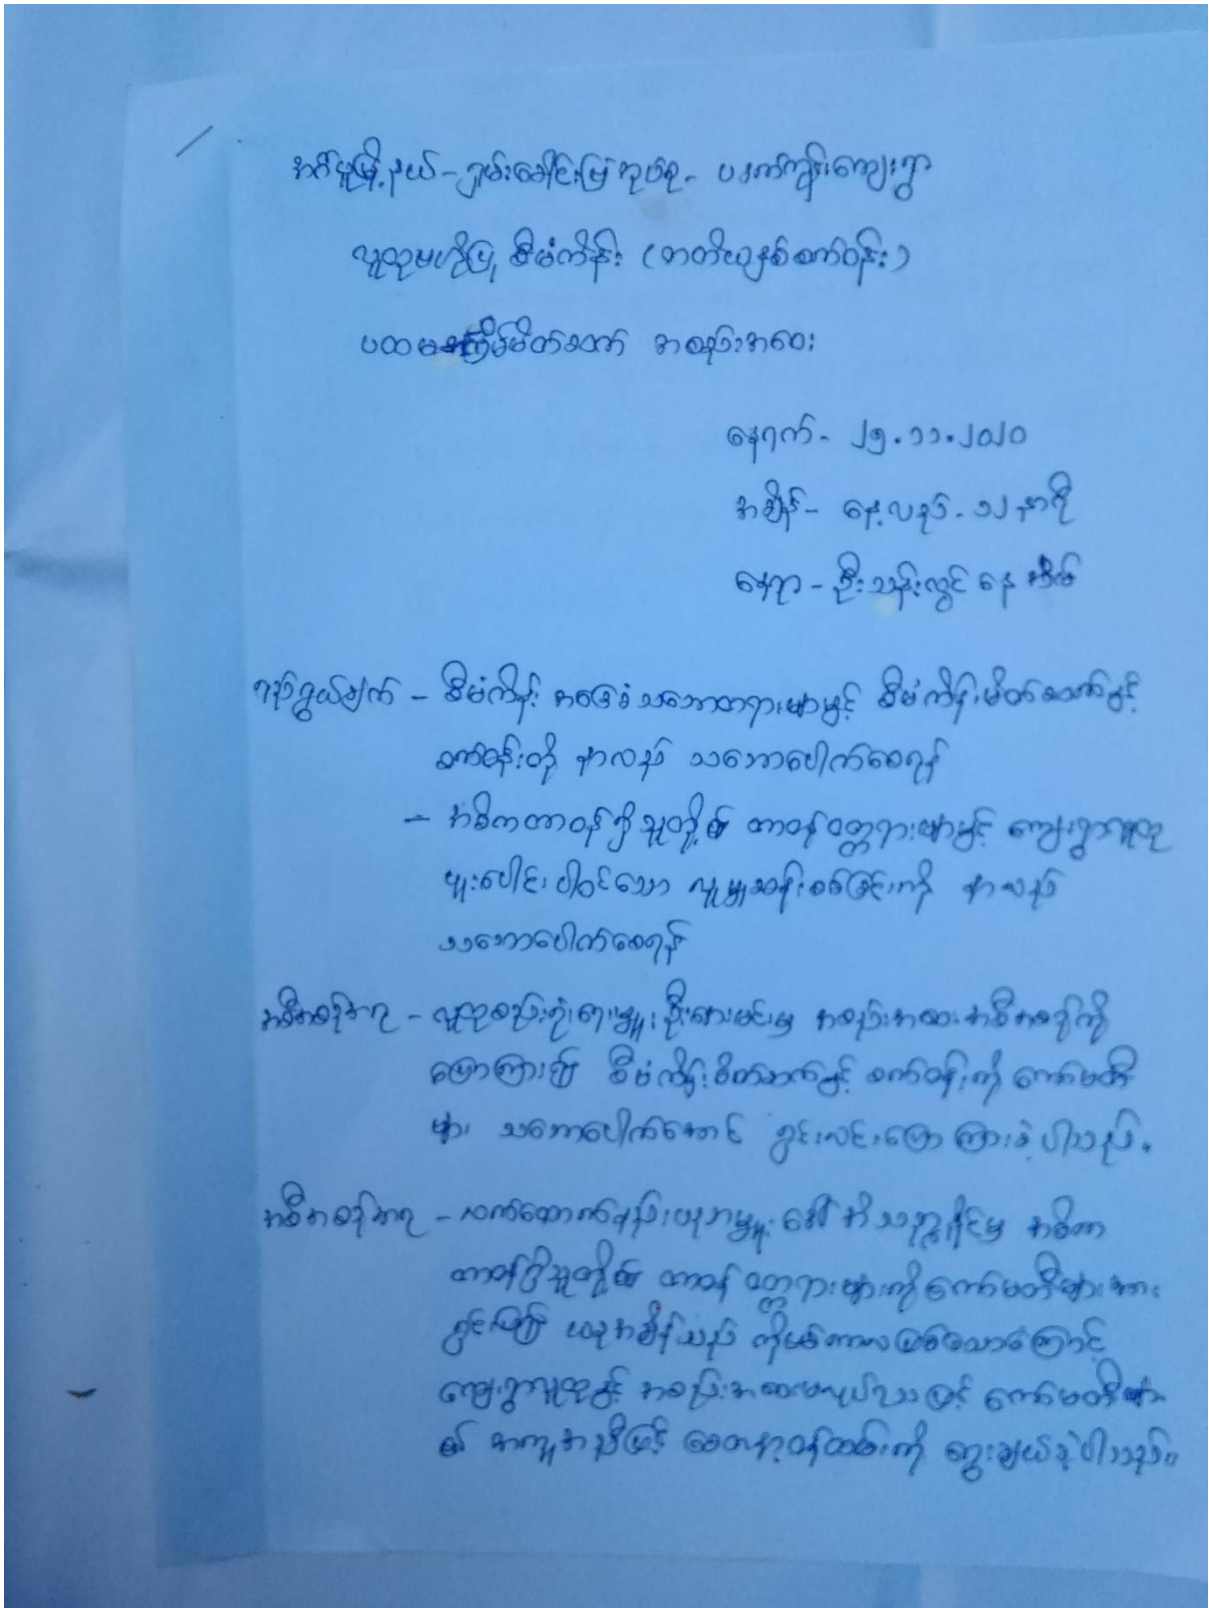 အင်္ဂပူမြို့နယ် - ရှမ်းခေါင်းမြဲအုပ်စု - ကျေးရွာ
လူထုဗဟိုပြု စီမံကိန်း (တတိယနှစ်စက်ဝန်း)
ပထမအကြိမ်မိတ်ဆက် အစည်းအဝေး
နေ့ရက် - ၂၅.၁၁.၂၀၂၀
အချိန် - နေ့လည် - ၁၂ နာရီ
နေရာ - ဦးသန်းလွင် နေအိမ်
ရည်ရွယ်ချက် - စီမံကိန်း အခြေခံသဘောတရားများနှင့် စီမံကိန်းမိတ်ဆက်နှင့်
စက်ဝန်းတို့ နာလည် သဘောပေါက်စေရန်
- အဓိကတာဝန်ရှိသူတို့၏ တာဝန်ဝတ္တရားများနှင့် ကျေးရွာလူထု
ပူးပေါင်းပါဝင်သော လူမှုဆန်းစစ်ခြင်းကို နာလည်
သဘောပေါက်စေရန်
အစီအစဉ်အရ - လူထုစည်းရုံးရေးမှူး ဦးအေးမင်းမှ အစည်းအဝေးအစီအစဉ်ကို
ပြောကြားပြီး စီမံကိန်းမိတ်ဆက်နှင့် စက်ဝန်းကို ကော်မတီ
များ သဘောပေါက်အောင် ရှင်းလင်းပြောကြားခဲ့ပါသည်။
အစီအစဉ်အရ - လက်ထောက်နည်းပညာမှူး ဒေါ်အိ မှ အဓိက
တာဝန်ရှိသူတို့၏ တာဝန် ဝတ္တရားများကိုကော်မတီများအား
ရှင်းပြပြီး ယခုအချိန်သည် ကိုဗစ်ကာလဖြစ်သောကြောင့်
ကျေးရွာလူထုနှင့် အစည်းအဝေးမလုပ်ဘဲ ကော်မတီများ
၏ အကူအညီဖြင့် စေတနာ့ဝန်ထမ်းကို ရွေးချယ်ခဲ့ပါသည်။